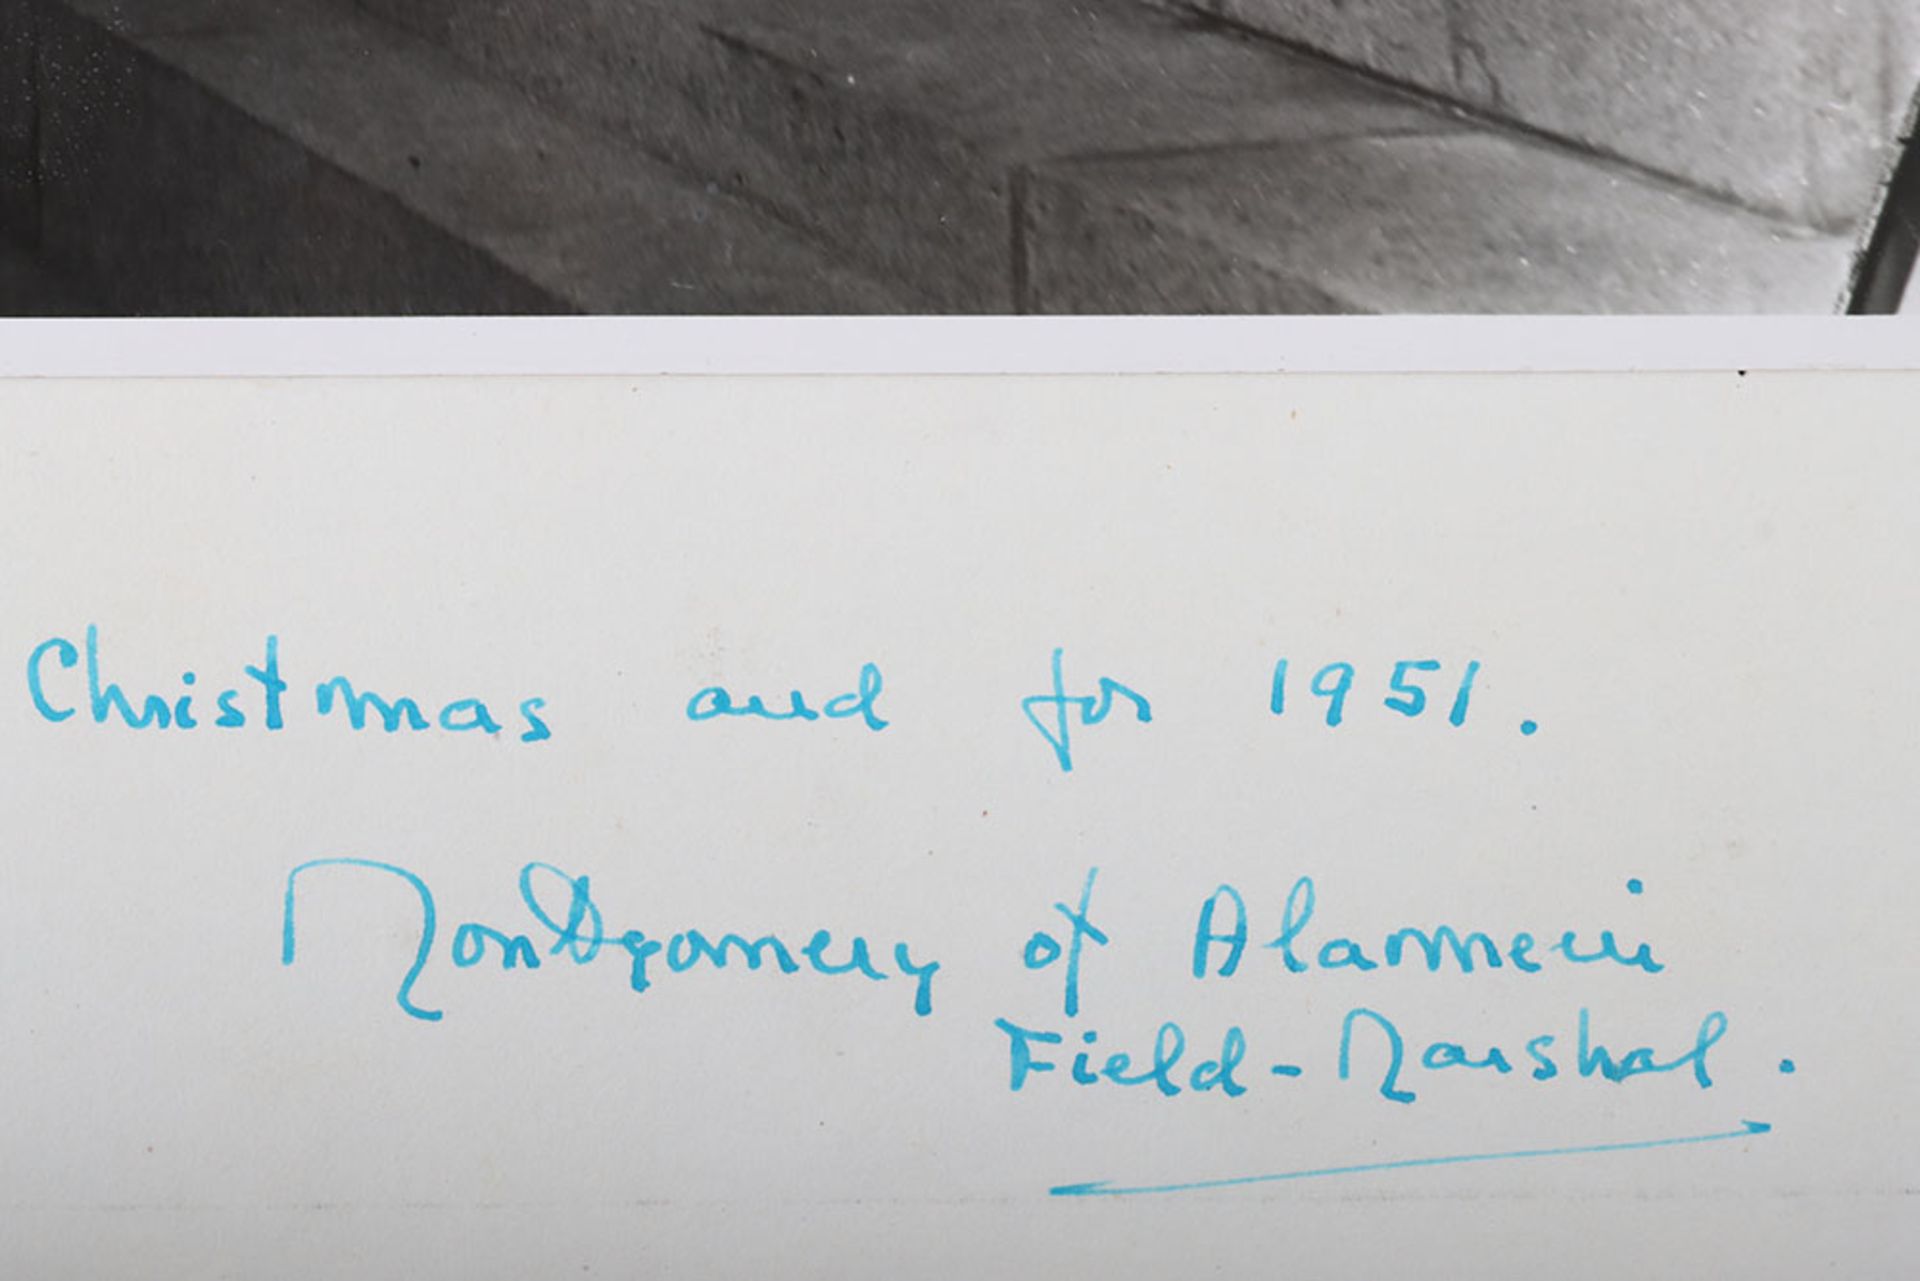 Christmas and for 1951.
Montgomery of Alamein
Field-Marshal.